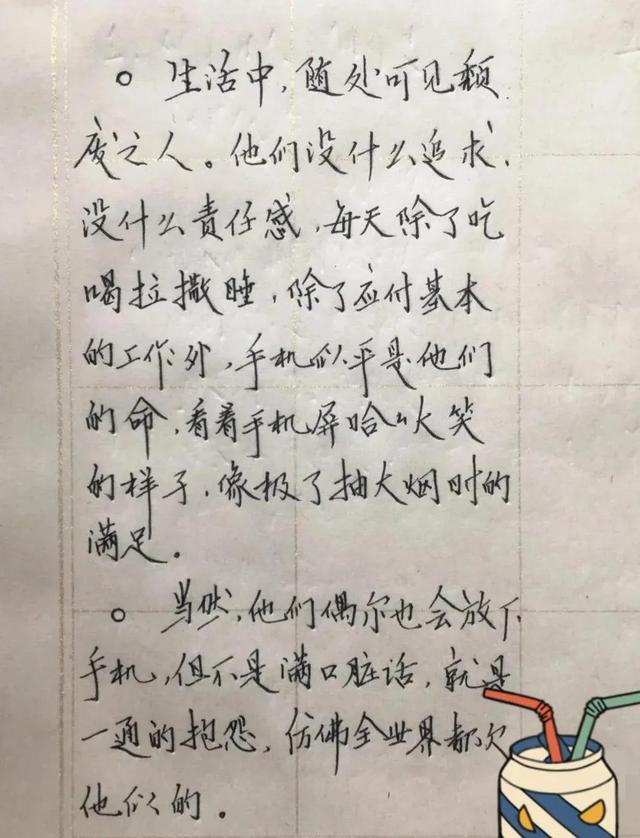 。生活中，随处可见颓
废之人。他们没什么追求，
没什么责任感，每天除了吃
喝拉撒睡，除了应付基本
的工作外，手机似乎是他们
的命，看着手机屏哈哈大笑
的样子，像极了抽大烟时的
满足。
。当然，他们偶尔也会放下
手机，但不是满口脏话，就是
一通的抱怨，仿佛全世界都欠
他们的。